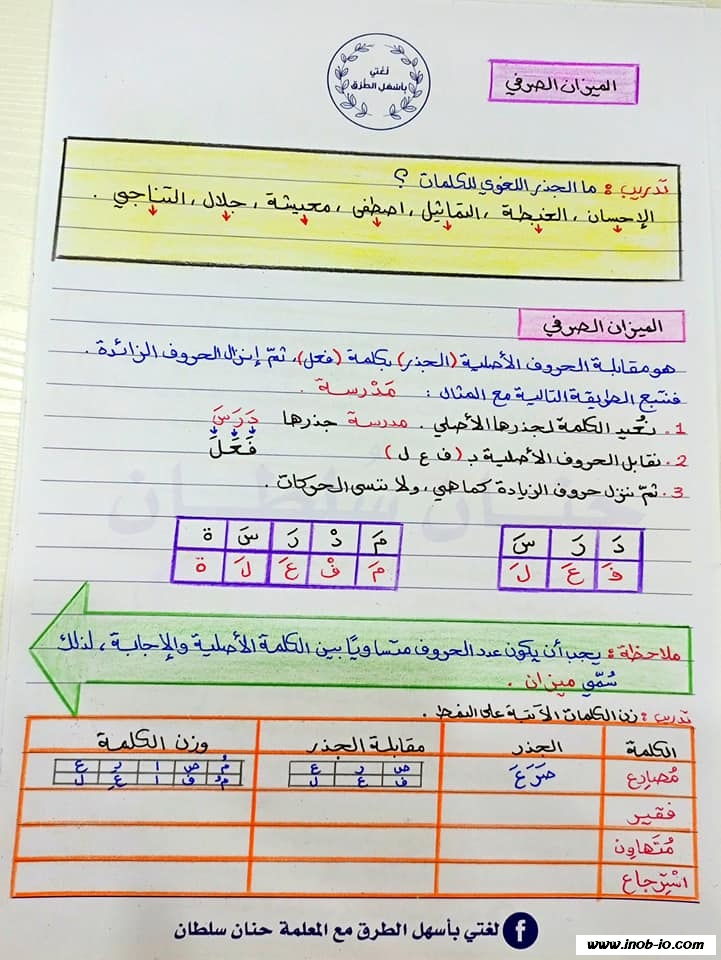 لغتي
بأسهل الطرق
الميزان الصرفي
تدريب : ما الجذر اللغوي للكلمات ؟
الإحسان ، الغبطة ، التماثيل ، اصطفى ، معيشة ، جلال ، التناجي .
الميزان الصرفي
هو مقابلة الحروف الأصلية (الجذر) بكلمة (فعل)، ثمّ إنزال الحروف الزائدة .
فنتبع الطريقة التالية مع المثال : مَدْرسة .
1. نُعيد الكلمة لجذرها الأصلي . مدرسة جذرها دَرَسَ
2. نقابل الحروف الأصلية بـ (ف ع ل) فَعَلَ
3. ثمّ ننزل حروف الزيادة كما هي ، ولا ننسى الحركات .
دَ رَ سَ
فَ عَ لَ
مَ دْ رَ سَ ة
مَ فْ عَ لَ ة
حنان سُلطان
ملاحظة : يجب أن يكون عدد الحروف متساويًا بين الكلمة الأصلية والإجابة ، لذلك
سُمّي ميزان .
تدريب : زن الكلمات الآتية على النمط .
الكلمة الجذر مقابلة الجذر وزن الكلمة
مُصارِع صَرَعَ
ص ر ع
ف ع ل
مُ ص ا رِ ع
مُ ف ا عِ ل
فقير
مُتَهاوِن
اسْتِرجاع
لغتي بأسهل الطرق مع المعلمة حنان سلطان
www.inob-io.com